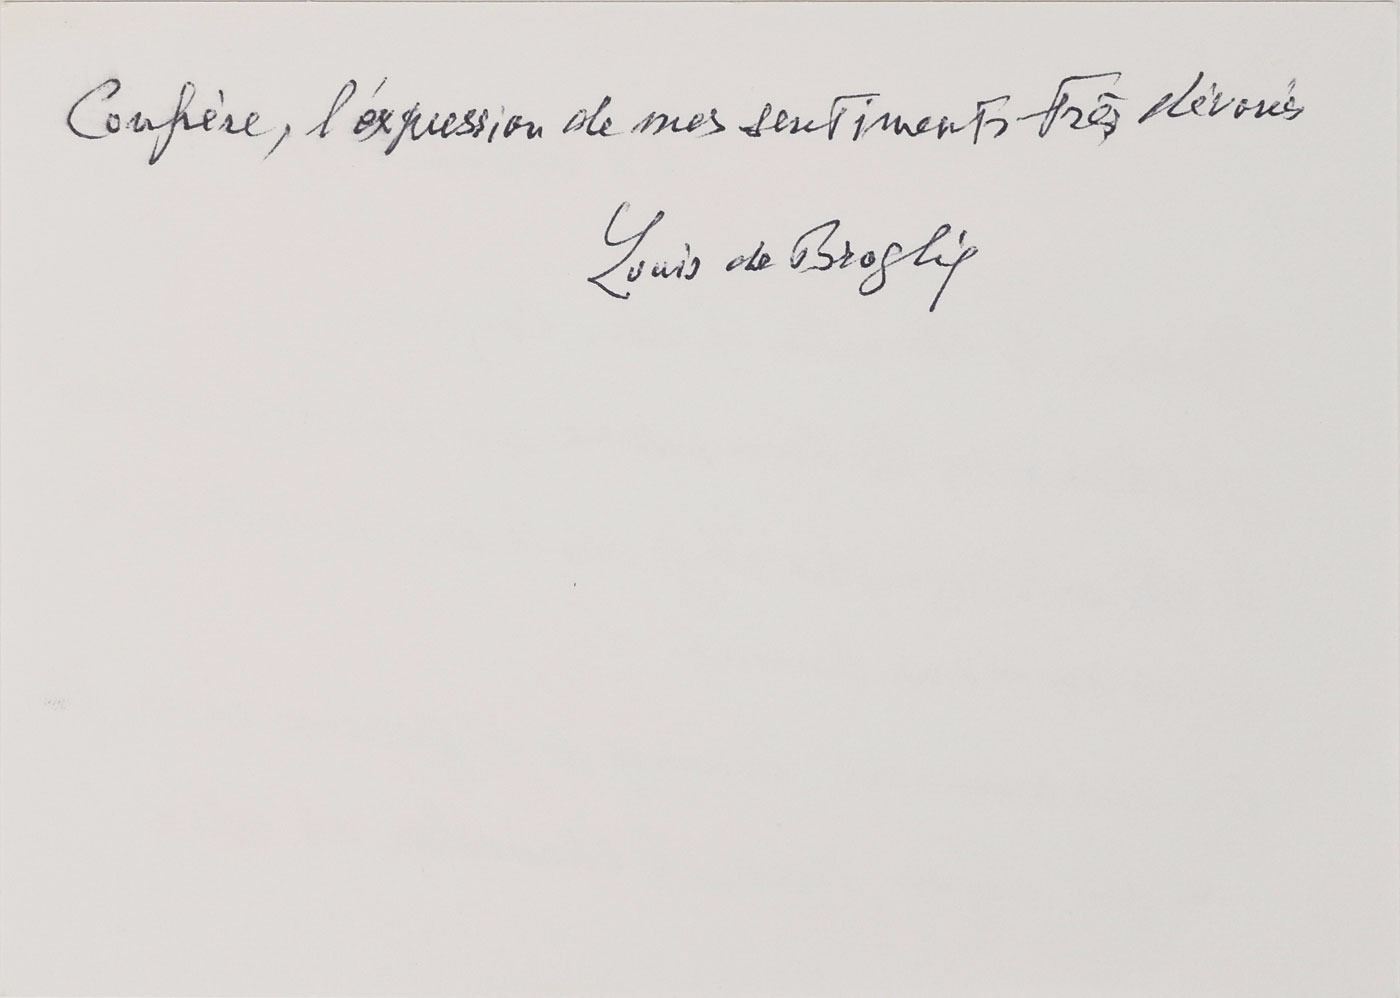 Confrère, l'expression de mes sentiments très dévoués
Louis de Broglie